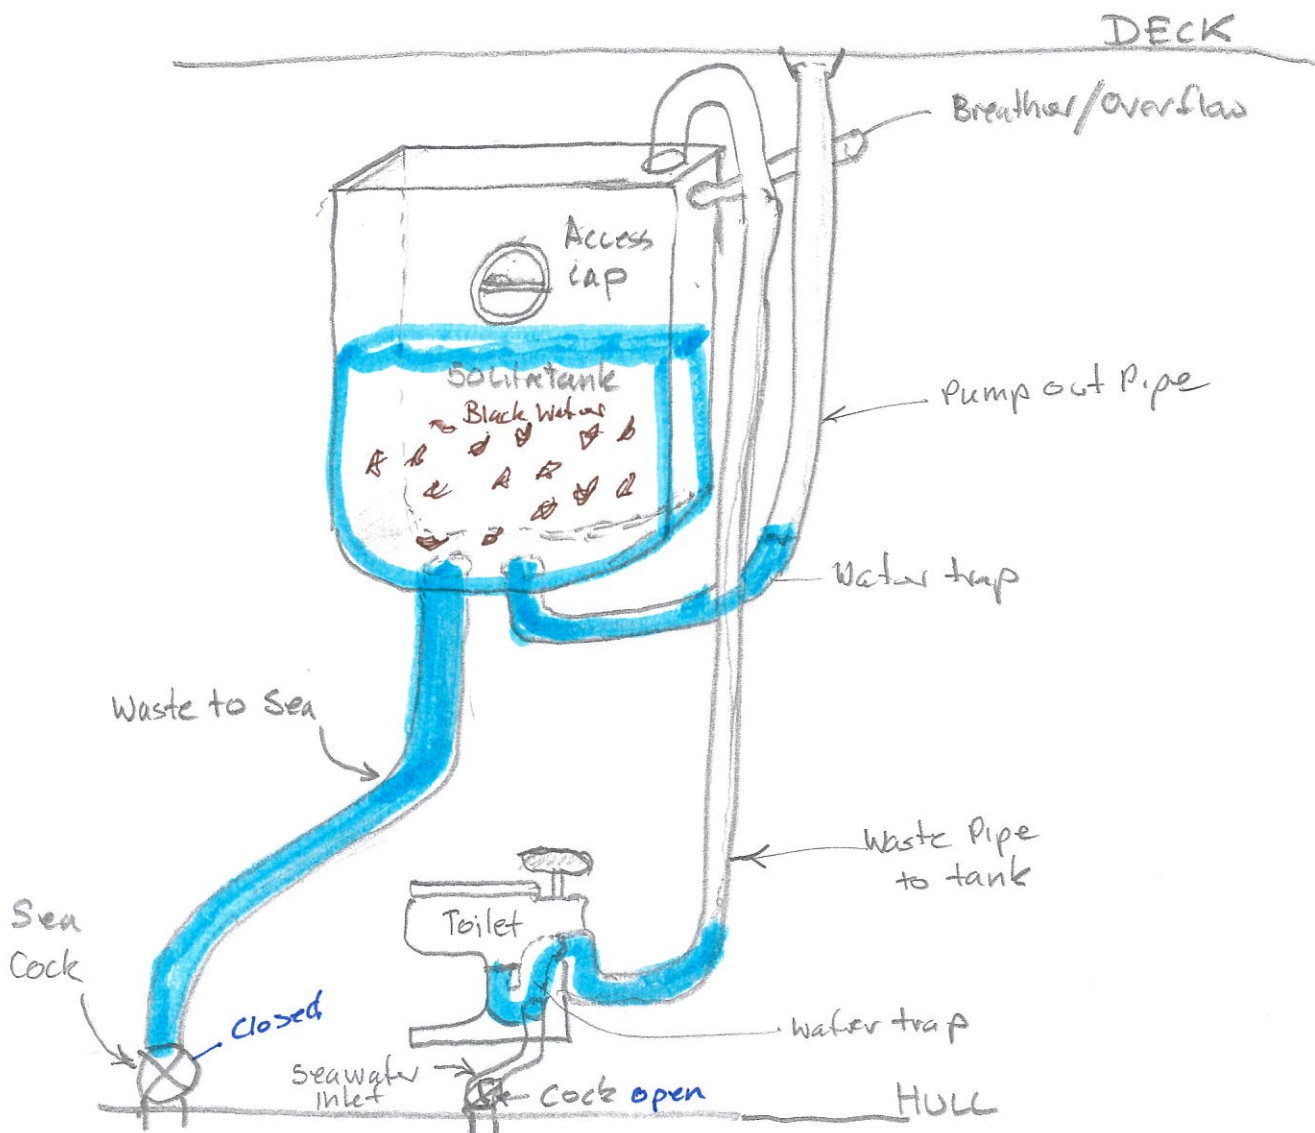 DECK
Breather/Overflow
Access
Cap
50 Litre tank
Black Water
Pump out Pipe
Water trap
Waste to Sea
Waste Pipe
to tank
Toilet
Sea
Cock
Closed
Water trap
Seawater
inlet
Cock open
HULL